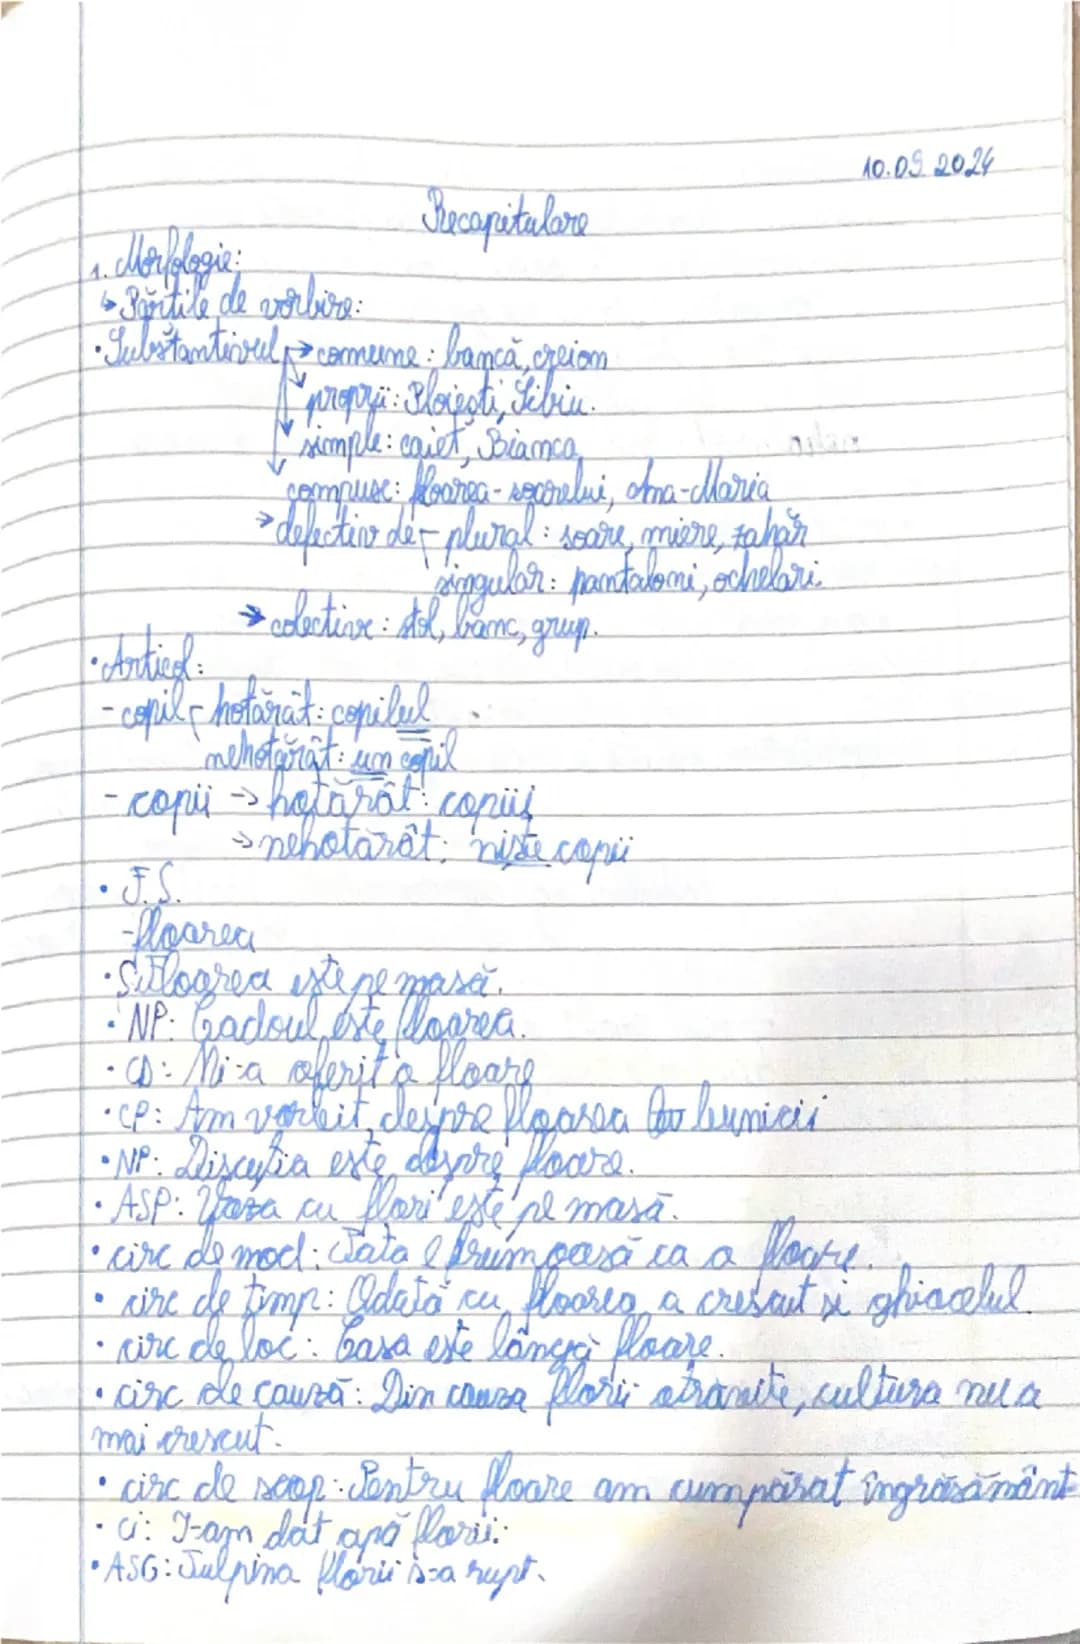 10.09.2024
Recapitulare
1. Morfologie:
↳ Părțile de vorbire:
• Substantivul → comune: bancă, creion
proprii: Ploiești, Sibiu.
simple: caiet, Bianca
compuse: floarea-soarelui, Ana-Maria
→ defectiv de - plural: soare, miere, zahăr
singular: pantaloni, ochelari.
→ colective: stol, banc, grup.
• Articol:
- copil - hotărât: copilul
nehotărât: un copil
- copii → hotărât: copiii
→ nehotărât: niște copii
• F.S.
- floarea
• S: Floarea este pe masă.
• NP: Cadoul este floarea.
• CD: Mi-a oferit o floare
• CP: Am vorbit despre floarea bunicii
• NP: Discuția este despre floare.
• ASP: Vaza cu flori este pe masă.
• circ de mod: Fata e frumoasă ca o floare.
• circ de timp: Odată cu floarea a crescut și ghiocelul.
• circ de loc: Casa este lângă floare.
• circ de cauză: Din cauza florii cultura nu a
mai crescut.
• circ de scop: Pentru floare am cumpărat îngrășământ
• Ci: I-am dat apă florii.
• ASG: Tulpina florii s-a rupt.